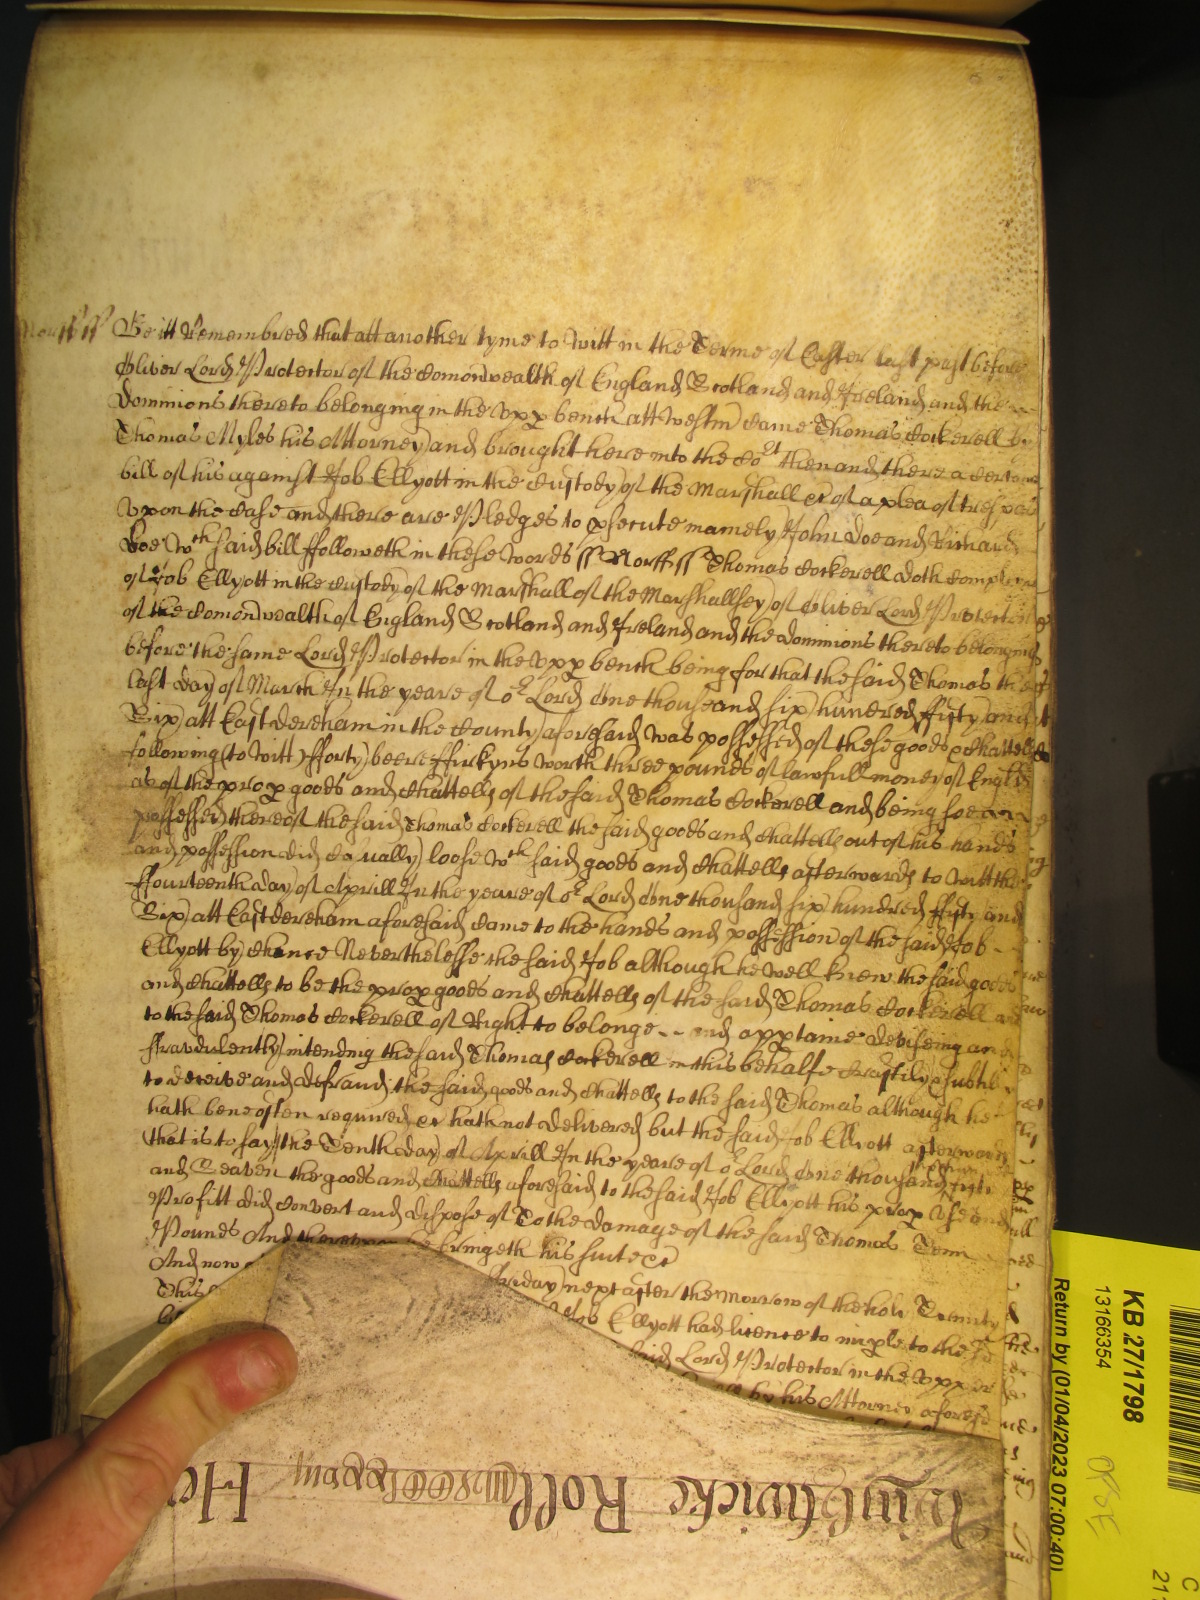 Norff ss Be itt Remembred that att another tyme to Witt in the Terme of Easter last past before
Oliver Lord Protector of the Comonwealth of England Scotland and Ireland and the
Dominions thereto belonging in the Upp bench att Westm came Thomas Cockerell by
Thomas Myles his Attorney and brought here into the Cort then and there a certaine
bill of his against Job Ellyott in the custody of the Marshall &c of a plea of trespas
Vpon the Case and there are Pledges to psecute namely John Doe and Richard
Roe Wch said bill followeth in these words ss Norff ss Thomas Cockerell doth complaine
of Job Ellyott in the custody of the Marshall of the Marshallsey of Oliver Lord Protector
of the Comonwealth of England Scotland and Ireland and the dominions thereto belonging
before the same Lord Protector in the Upp bench being for that the said Thomas the
last day of March In the yeare of or Lord One thousand six hundred fifty and
Six att East dereham in the County aforesaid was possessed of these goods & Chattells
following (to witt) fforty beere ffirkyns worth three pounds of lawfull money of England
as of the prop goods and Chattells of the said Thomas Cockerell and being soe
possessed thereof the said Thomas Cockerell the said goods and Chattells out of his hands
and possession did Casually loose Wch said goods and Chattells afterwards to witt the
ffourteenth day of Aprill In the yeare of or Lord One thousand six hundred fifty and
Six att East dereham aforesaid came to the hands and possession of the said Job
Ellyott by Chance Neverthelesse the said Job although he well knew the said goods
and Chattells to be the prop goods and Chattells of the said Thomas Cockerell and
to the said Thomas Cockerell of Right to belonge and apptaine deviseing and
ffraudulently intending the said Thomas Cockerell in this behalfe craftily & subtilly
to deceive and defraud the said goods and Chattells to the said Thomas although he
hath bene often required &c hath not delivered but the said Job Elliott afterwards
that is to say the Tenth day of Aprill In the yeare of or Lord One thousand fifty
and Seaven the goods and Chattells aforesaid to the said Job Ellyott his prop Use and
Profitt did convert and dispose of To the damage of the said Thomas Tenn
Pounds And thereupon he bringeth his suite &c
And now friday next after the morrow of the holy Trinity
This Job Ellyott had licence to imple to the
said Lord Protector in the Upp
by his Attorney aforesd
Roll
KB 27/1798
13166354
Return by (01/04/2023 07:00:40)